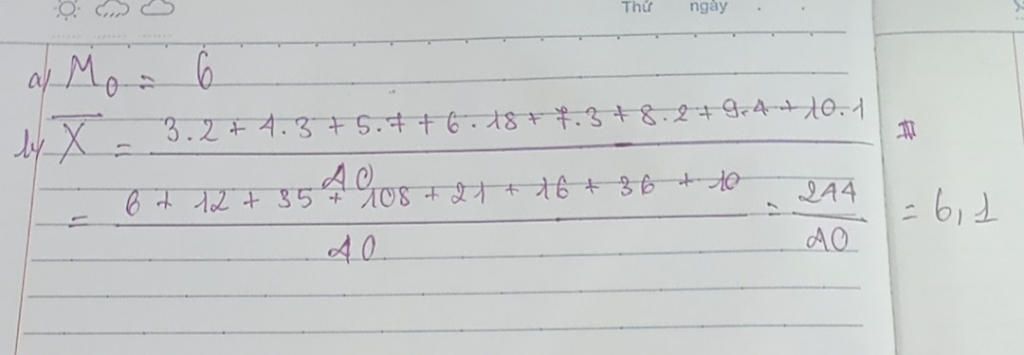 Thứ ngày . .
a) M₀ = 6
b) X̅ = (3.2 + 4.3 + 5.7 + 6.18 + 7.3 + 8.2 + 9.4 + 10.1) / 40
= (6 + 12 + 35 + 108 + 21 + 16 + 36 + 10) / 40 = 244 / 40 = 6,1